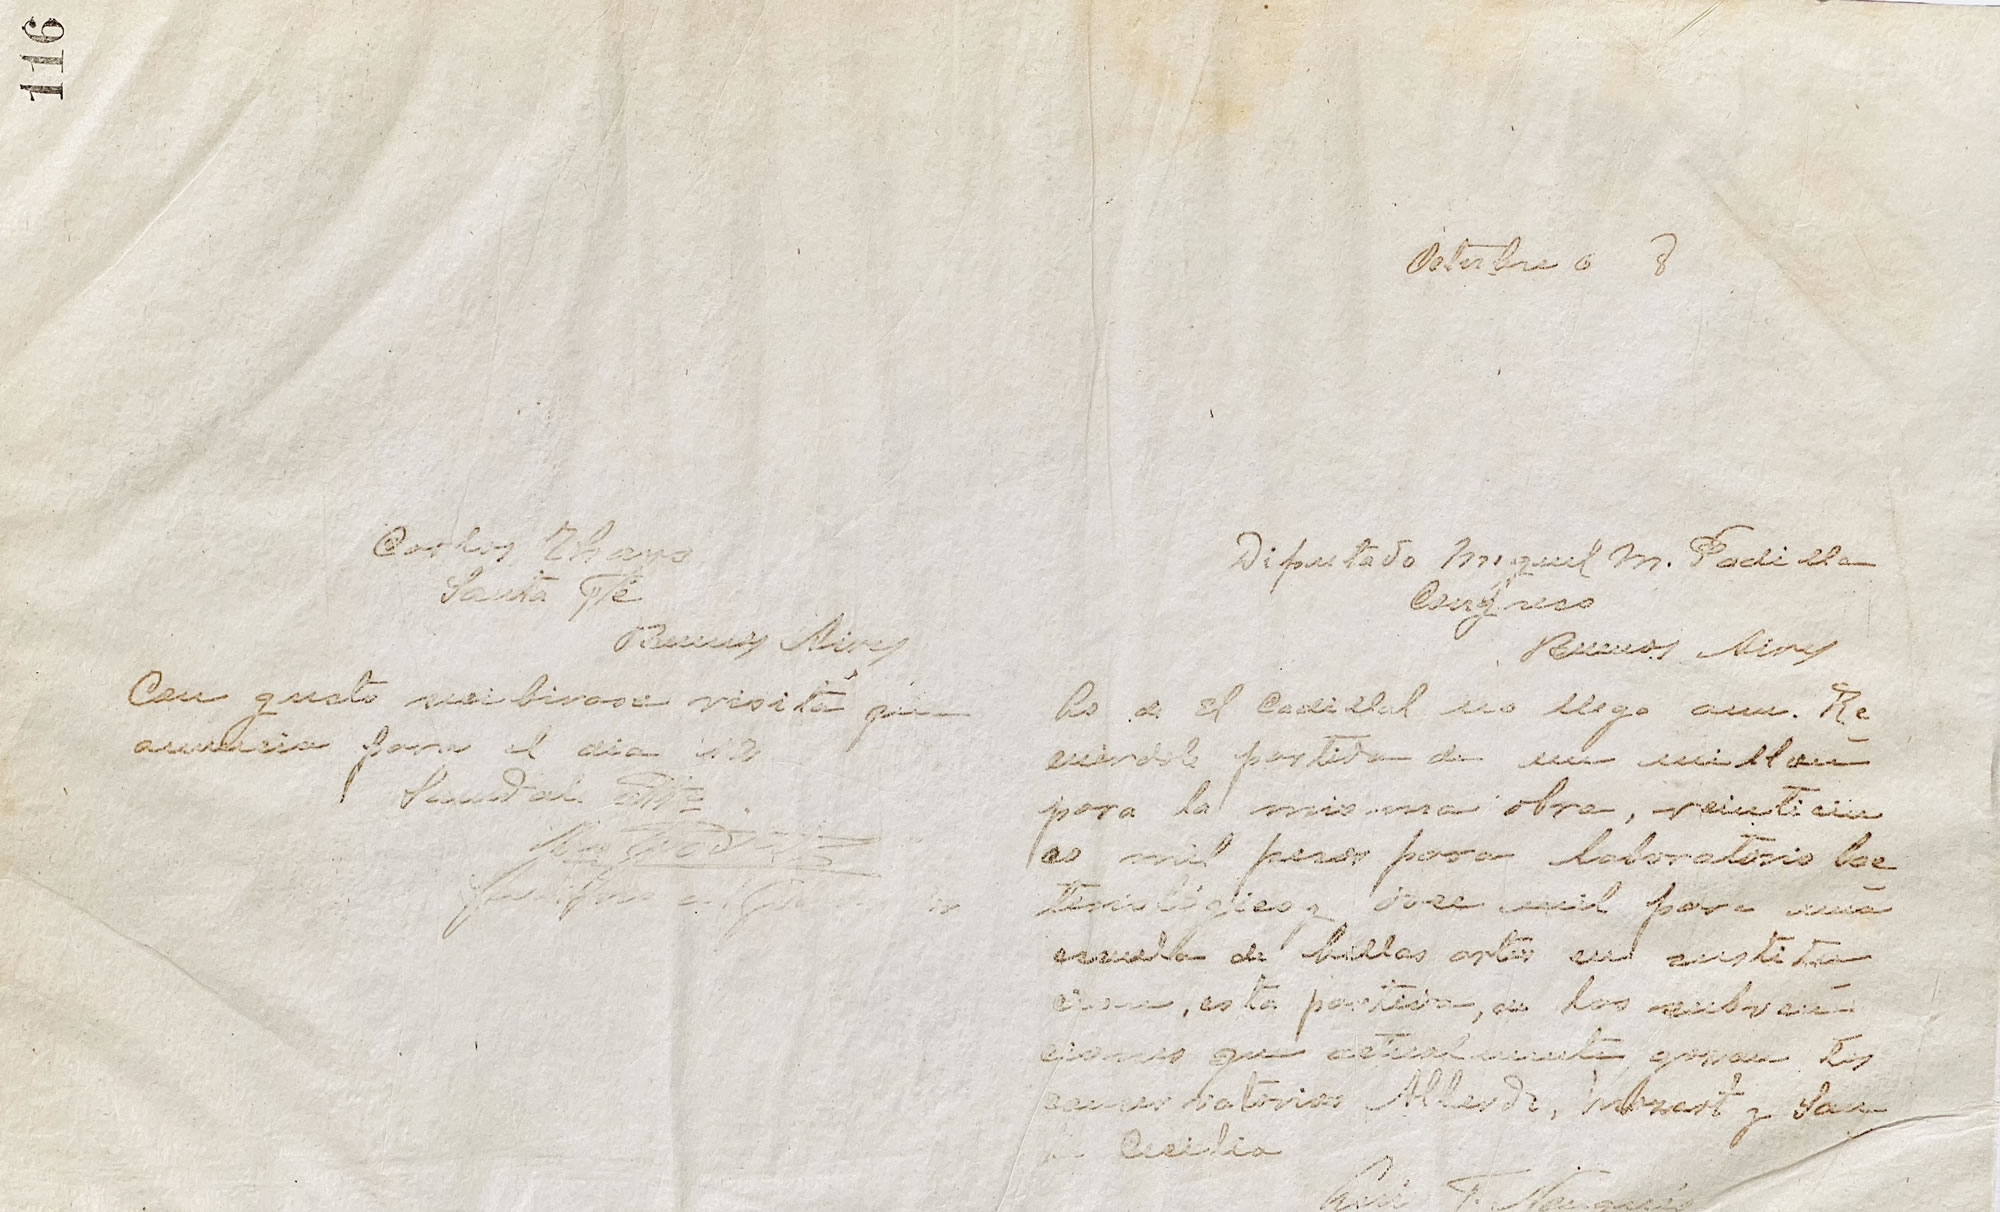 116
Octubre 6 8
Carlos Thays
Santa Fé
Buenos Aires
Con gusto recibirase visita que
anuncia para el dia 12
Diputado Miguel M. Padilla
Congreso
Buenos Aires
Lo de El Cadillal no llego aun. Re
cuerdole partida de un millon
para la misma obra, veinticin
co mil pesos para laboratorio bac
teriológico y doce mil para una
escuela de bellas artes en sustitu
cion, esta partida, a las subven
ciones que actualmente gozan los
conservatorios Alberdi, Mozart y San
Cecilia
Luis F. Nougués